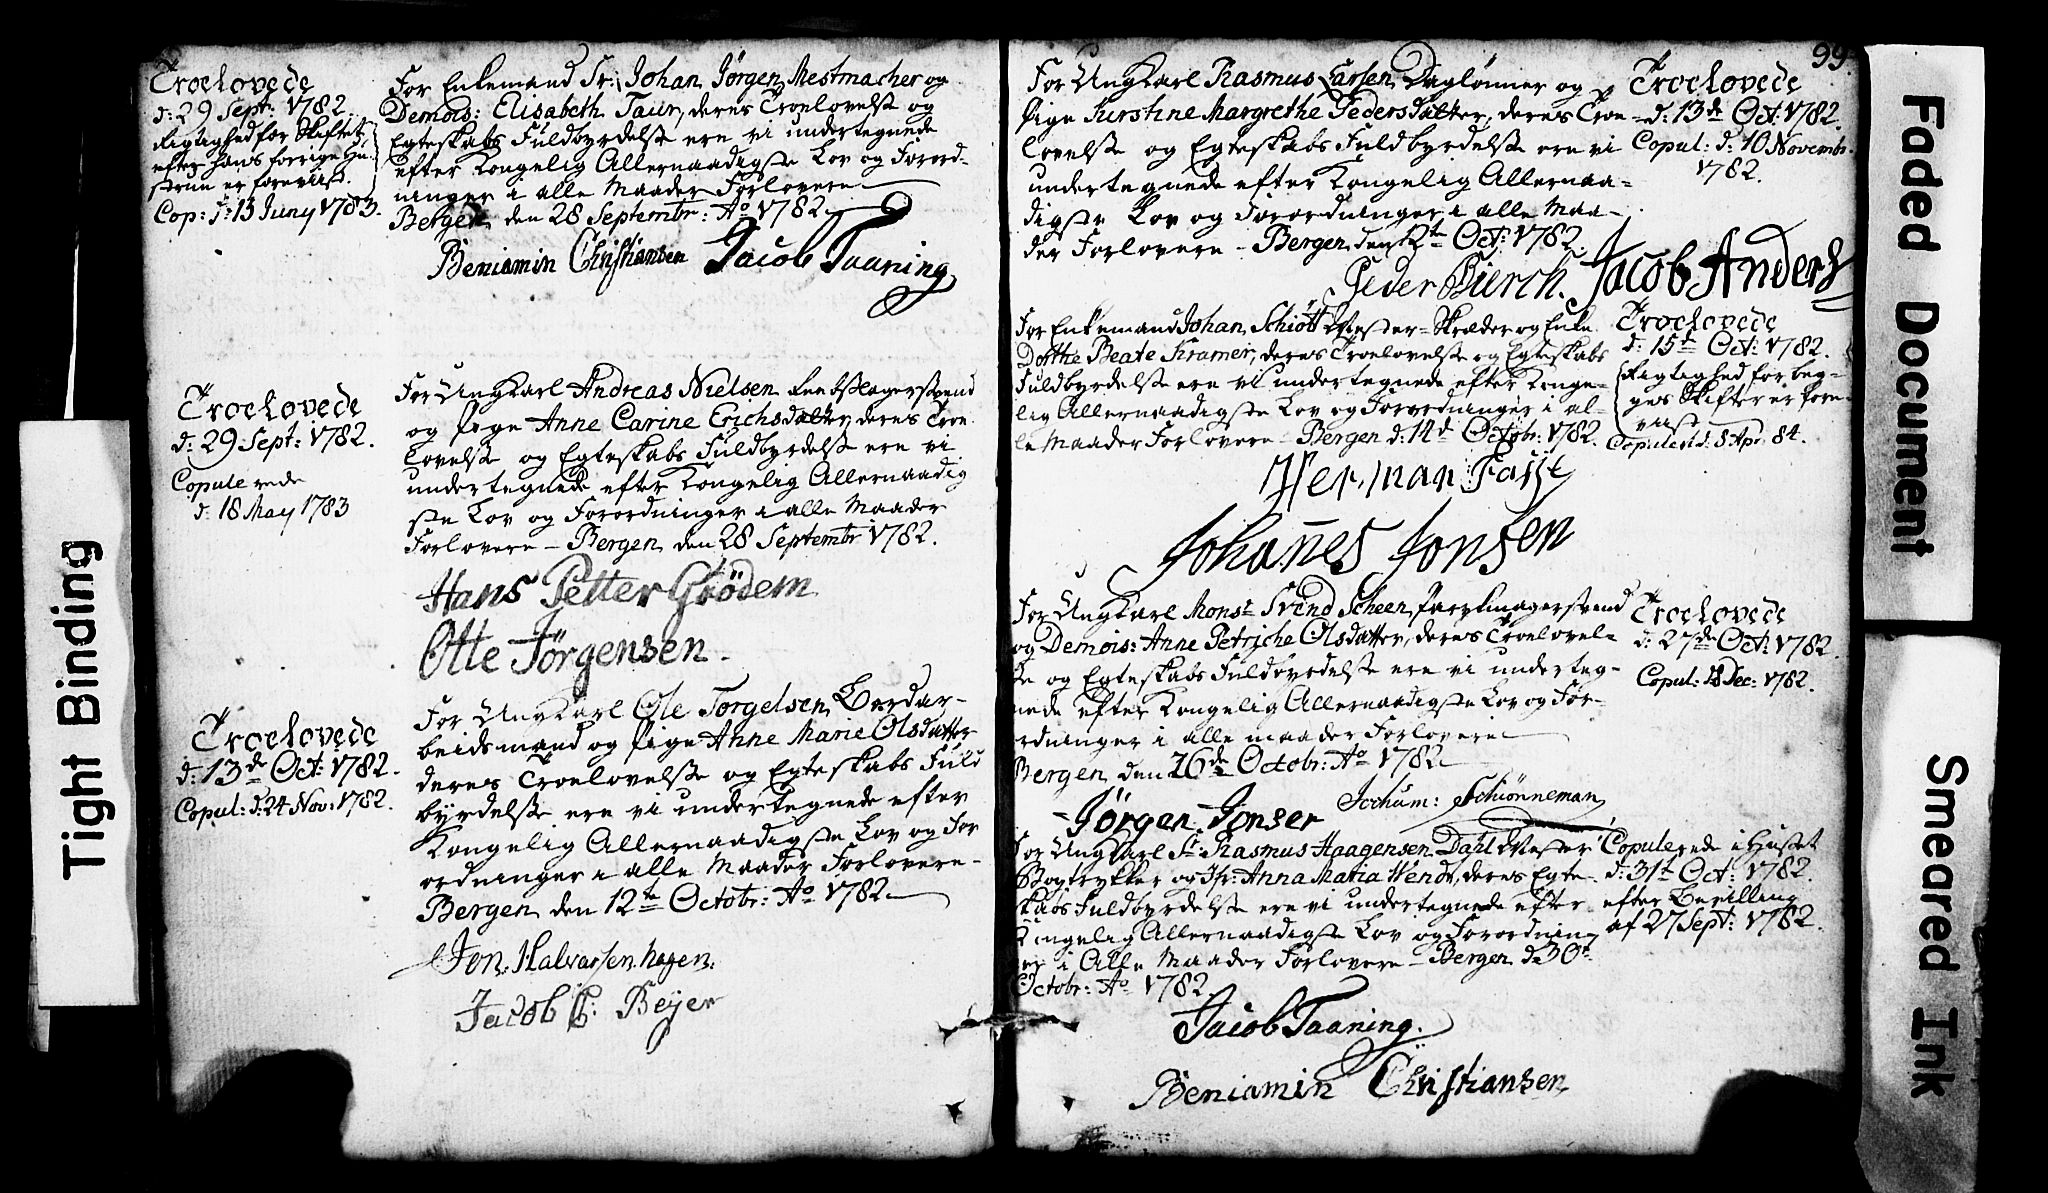 Troelovede
d: 29 Sept: 1782
Rigtighed for Skiftet
efter hans forrige Hu-
strue er foreviist.
Cop: d: 13 Juny 1783.
For Enkemand Sr: Johan Jørgen Mestmacher og
Demois: Elisabeth Taur, deres Troelovelse og
Egteskabs Fuldbyrdelse ere vi undertegnede
efter Kongelig Allernaadigste Lov og Forord-
ninger i alle Maader Forlovere
Bergen den 28 Septembr: Ao 1782
Beniamin Christiansen Jacob Taaning
Troelovede
d: 29 Sept: 1782.
Copulerede
d: 18 May 1783
For Ungkarl Andreas Nielsen
og Pige Anne Carine Erichsdatter, deres Troe
lovelse og Egteskabs Fuldbyrdelse ere vi
undertegnede efter Kongelig Allernaadig
ste Lov og Forordninger i alle Maader
Forlovere - Bergen den 28 Septembr 1782.
Hans Petter Grödem
Otte Jörgensen.
Troelovede
d: 13de Oct: 1782.
Copul: d: 24 Nov: 1782.
For Ungkarl Ole Torgelsen Bordar-
beidsmand og Pige Anne Marie Olsdatter
deres Troelovelse og Egteskabs Fuld
byrdelse ere vi undertegnede efter
Kongelig Allernaadigste Lov og For
ordninger i alle Maader Forlovere-
Bergen den 12te Octobr: Ao 1782
Jon: Halvarsen hagen:
Jacob C: Beyer
99.
For Ungkarl Rasmus Larsen Daglønner og
Pige Kirstine Margrethe Pedersdatter, deres Troe-
lovelse og Egteskabs Fuldbyrdelse ere vi
undertegnede efter Kongelig Allernaa-
digste Lov og Forordninger i alle Maa-
der Forlovere - Bergen den 12te Oct: 1782.
Peder Bierch. Jacob Anders
Troelovede
d: 13de Oct: 1782.
Copul: d: 10 Novembr.
1782.
For Enkemand Johan Schiött Mester-Skræder og Enke
Dorthe Beate Kramer, deres Troelovelse og Egteskabs
Fuldbyrdelse ere vi undertegnede efter Konge-
lig Allernaadigste Lov og Forordninger i al-
le Maader Forlovere - Bergen d: 14d Octobr. 1782.
Herman Fasse
Johannes Jonsen
Troelovede
d: 15de Oct: 1782.
Rigtighed for beg-
ges Skifter er fore-
viist
Copulerd d: 8 Apr: 84.
For Ungkarl Monsr Svend Scheen Parykmagersvend
og Demois: Anne Petriche Olsdatter, deres Troelovel-
se og Egteskabs Fuldbyrdelse ere vi underteg-
nede efter Kongelig Allernaadigste Lov og For-
ordninger i alle maader Forlovere
Bergen den 26de Octobr: Ao 1782
Jörgen Jonser Jochum: Schiönneman
Troelovede
d: 27de Oct: 1782
Copul: 18 Dec: 1782.
For Ungkarl Sr Rasmus Haagensen Dahl Mester
Bogtrykker og Jfr: Anna Maria Wendt, deres Egte-
skabs Fuldbyrdelse ere vi undertegnede efter
Kongelig Allernaadigste Lov og Forordnin
ger i Alle Maader Forlovere - Bergen d 30te
Octobr: Ao 1782
Jacob Taaning.
Beniamin Christiansen
Copulerede i Huset
d: 31te Oct: 1782.
efter Bevilling
af 27 Sept: 1782.
Tight Binding
Faded Document
Smeared Ink